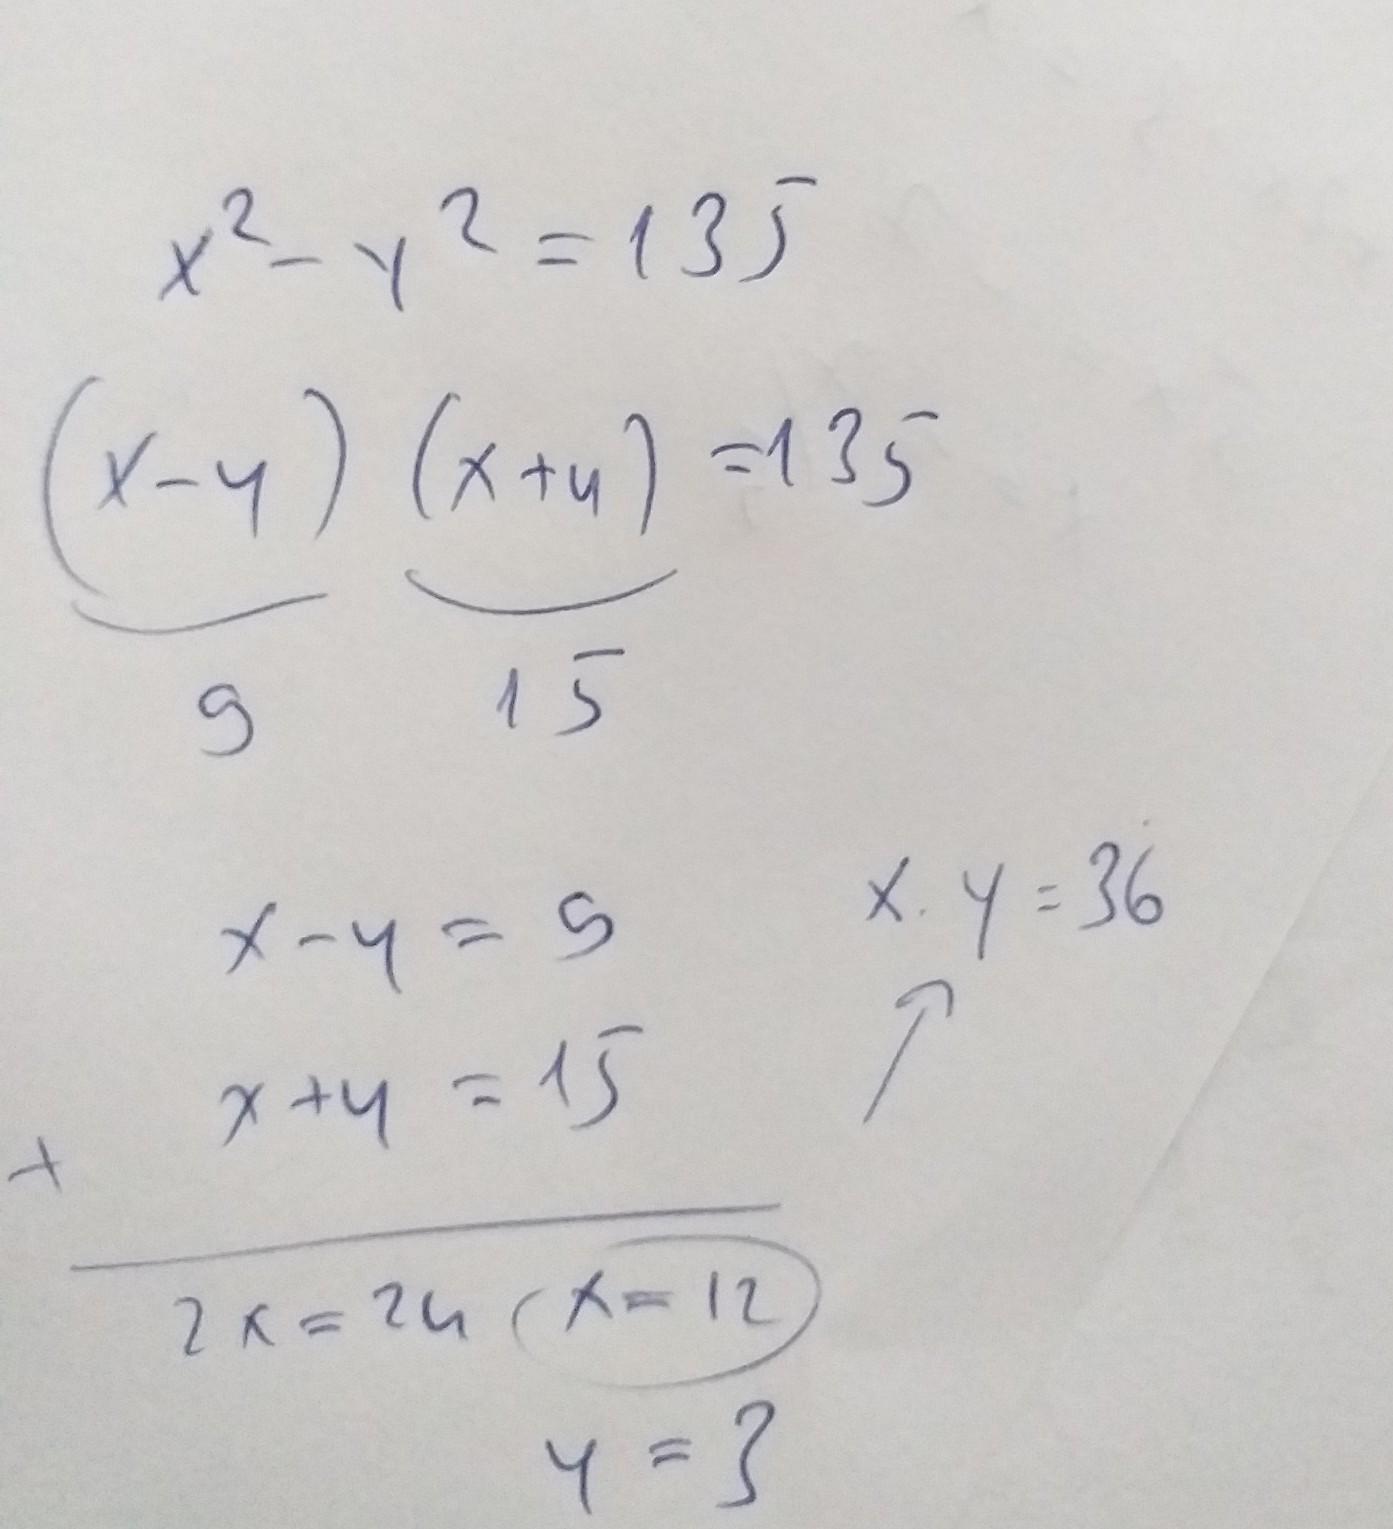 x² - y² = 135
(x - y) (x + y) = 135
9 15
x - y = 9
x . y = 36
x + y = 15
+
2x = 24 x = 12
y = 3